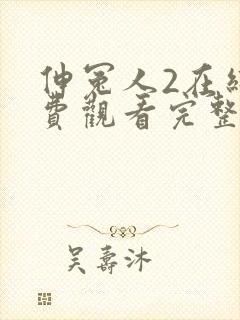 伸冤人2在線
費觀看完整
吳壽沐